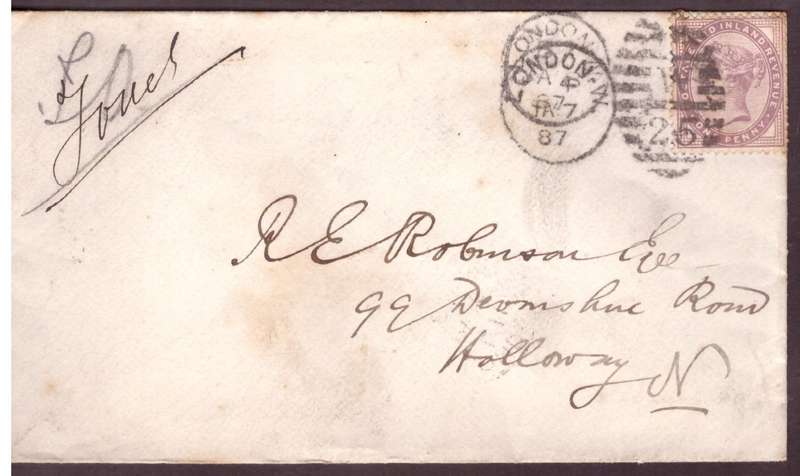 Jones
LONDON
LONDON·W
A
87
JA 7
87
POSTAGE AND INLAND REVENUE
ONE PENNY
R E Robinson Esq
99 Devonshire Road
Holloway
N